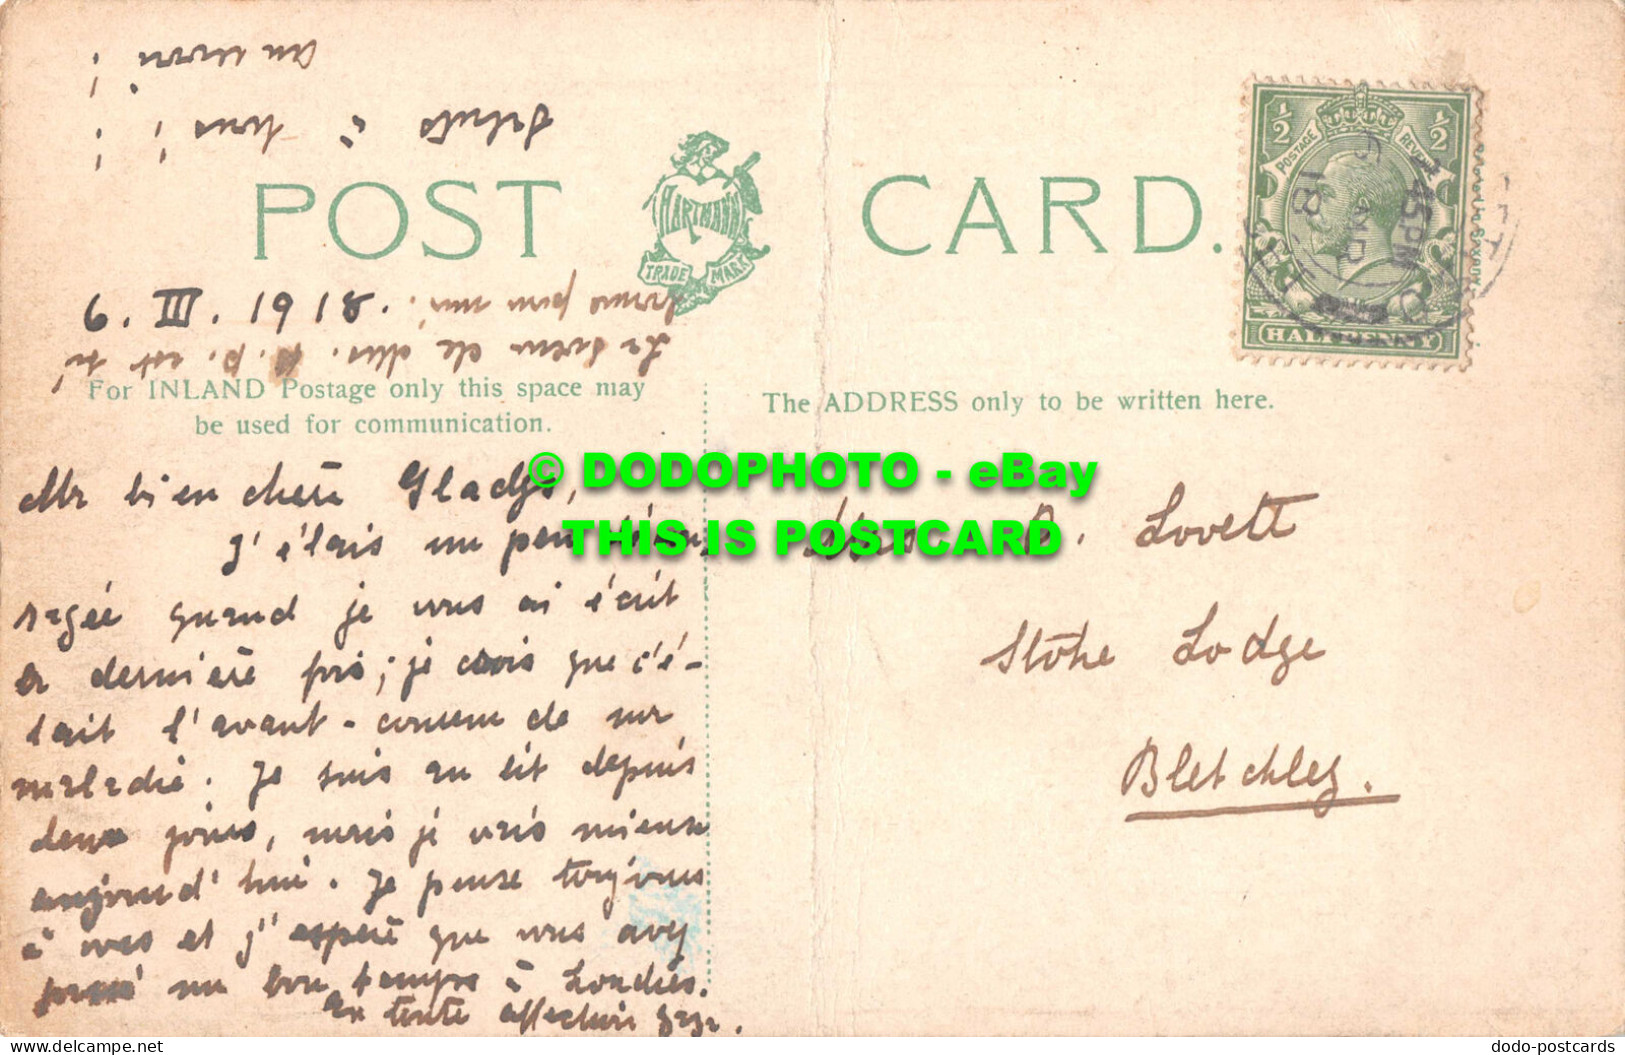 au revoir !
Saluts à tous !
POST CARD.
HARTMANN
TRADE MARK
½ ½
POSTAGE REVENUE
45 PM
6 MR
18
HALFPENNY
6. III. 1918.
bonne pour moi.
La soeur de est
For INLAND Postage only this space may
be used for communication.
The ADDRESS only to be written here.
© DODOPHOTO - eBay
THIS IS POSTCARD
Ma bien chère Gladys,
J'étais un peu
quand je vous ai écrit
la dernière fois; je crois que c'é-
tait l'avant-coureur de ma
maladie. Je suis au lit depuis
deux jours, mais je vais mieux
aujourd'hui. Je pense toujours
à vous et j'espère que vous avez
passé un bon temps à Londres.
En toute affection
D. Lovett
Stoke Lodge
Bletchley.
dodo-postcards